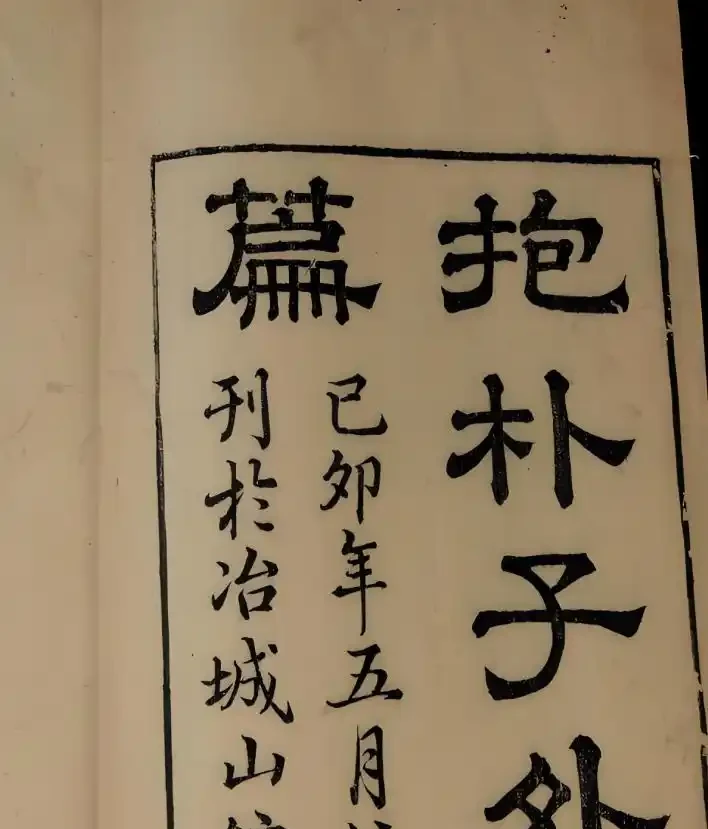 抱朴子外
篇
己卯年五月
刊於冶城山